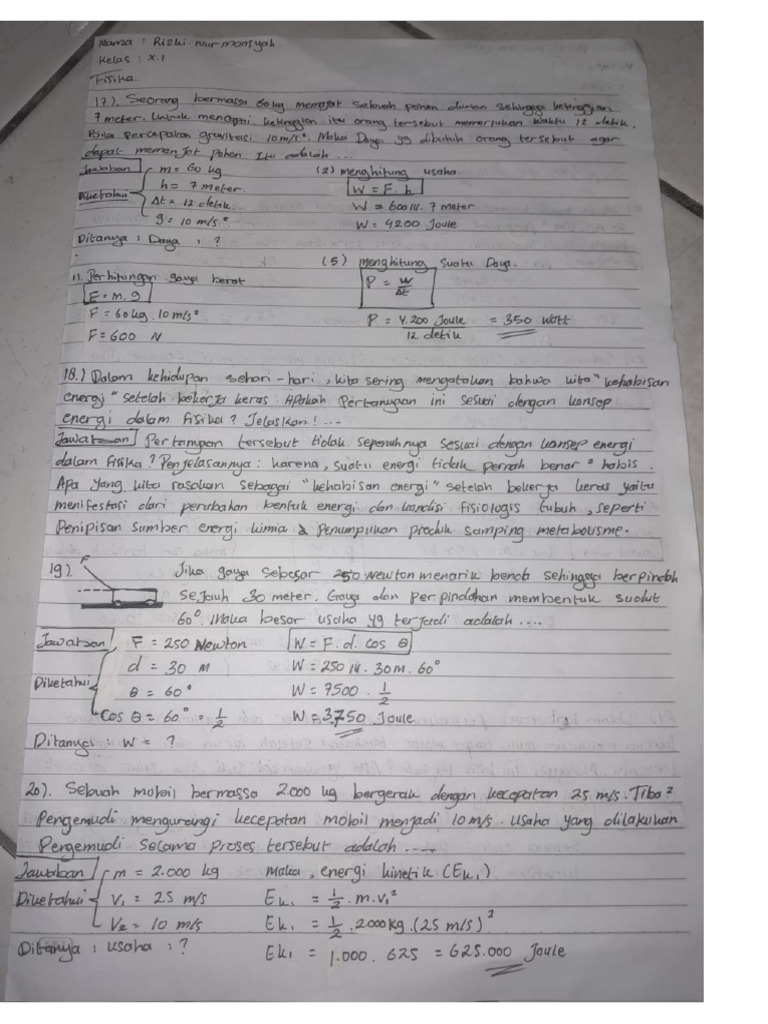 Nama : Rizki nur mansyah.
Kelas : X.1
Fisika.
17). Seorang bermassa 60 kg memanjat sebuah pohon durian sehingga ketinggian
7 meter. Untuk mencapai ketinggian itu orang tersebut memerlukan waktu 12 detik.
Bila percepatan gravitasi 10 m/s². Maka Daya yg dibutuh orang tersebut agar
dapat memanjat pohon itu adalah ...
Jawaban m = 60 kg. (2) menghitung usaha.
h = 7 meter. W = F. h
Diketahui Δt = 12 detik. W = 600 N. 7 meter
g = 10 m/s² W = 4200 Joule
Ditanya : Daya : ?
(5) menghitung suatu Daya.
1). Perhitungan gaya berat P = W/Δt
F = m. g
F = 60 kg . 10 m/s² P = 4.200 Joule / 12 detik = 350 Watt
F = 600 N
18.) Dalam kehidupan sehari-hari, kita sering mengatakan bahwa kita "kehabisan
energi" setelah bekerja keras. Apakah Pertanyaan ini sesuai dengan konsep
energi dalam fisika? Jelaskan! ...
Jawaban Pertanyaan tersebut tidak sepenuhnya sesuai dengan konsep energi
dalam fisika? Penjelasannya : karena, suatu energi tidak pernah benar² habis.
Apa yang kita rasakan sebagai "kehabisan energi" setelah bekerja keras yaitu
menifestasi dari perubahan bentuk energi dan kondisi fisiologis tubuh, seperti
Penipisan sumber energi kimia & Penumpukan produk samping metabolisme.
19). F Jika gaya sebesar 250 Newton menarik benda sehingga berpindah
sejauh 30 meter. Gaya dan perpindahan membentuk sudut
60°. Maka besar usaha yg terjadi adalah ....
Jawaban F = 250 Newton W = F. d. cos θ
d = 30 M W = 250 N. 30 M. 60°
Diketahui θ = 60° W = 7500 . 1/2
Cos θ = 60° = 1/2 W = 3.750 Joule
Ditanya : W = ?
20). Sebuah mobil bermassa 2.000 kg bergerak dengan kecepatan 25 m/s. Tiba²
Pengemudi mengurangi kecepatan mobil menjadi 10 m/s. usaha yang dilakukan
Pengemudi selama proses tersebut adalah ....
Jawaban m = 2.000 kg maka, energi kinetik (Ek₁)
Diketahui V₁ = 25 m/s Ek₁ = 1/2 . m. v₁²
V₂ = 10 m/s Ek₁ = 1/2 . 2000 kg . (25 m/s)²
Ditanya : usaha : ? Ek₁ = 1.000 . 625 = 625.000 Joule